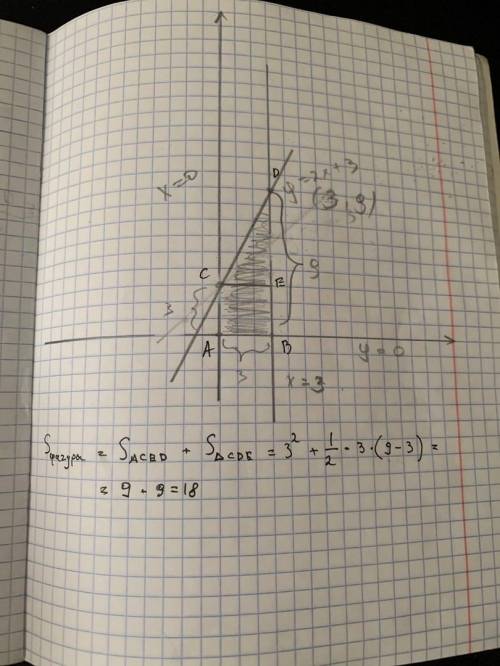 D
y = 2x + 3
x = 0
(3, 9)
C
E
3
9
A
B
3
y = 0
x = 3
Sфигуры = SACBD + SΔCDE = 3² + 1/2 · 3 · (9 - 3) =
= 9 + 9 = 18